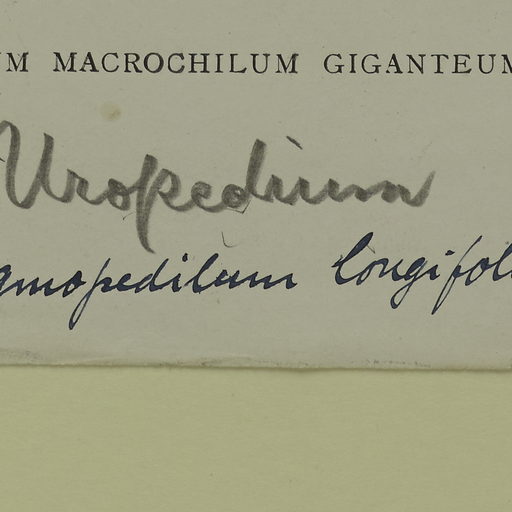 UM MACROCHILUM GIGANTEUM
Uropedium
gmopedilum longifol